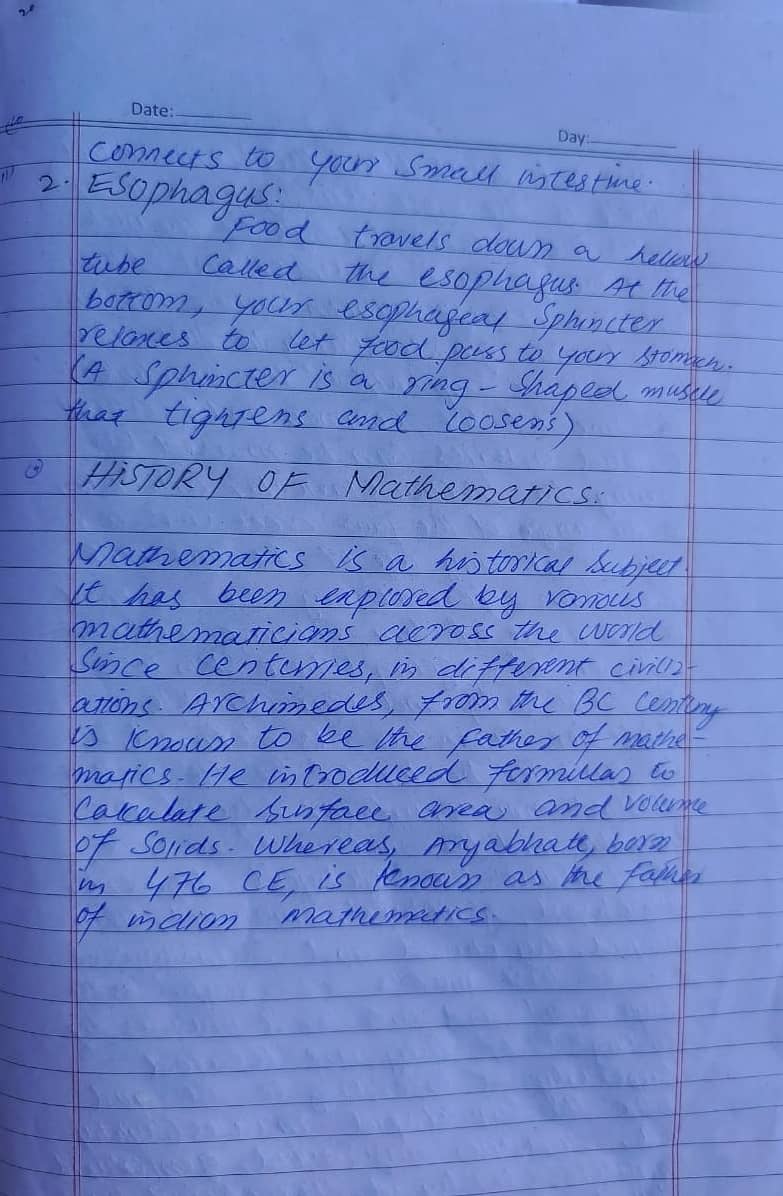 Date:
Day:
Connects to your Small intestine.
2. Esophagus:
Food travels down a hollow
tube Called the esophagus. At the
bottom, your esophageal Sphincter
relaxes to let food pass to your stomach.
(A Sphincter is a ring - Shaped muscle
that tightens and loosens)
HISTORY OF Mathematics:
Mathematics is a historical Subject.
It has been explored by various
mathematicians across the world
Since centuries, in different civiliz-
ations. Archimedes, from the BC Century
is known to be the father of mathe-
matics. He introduced formulas to
Calculate Surface area and volume
of Solids. Whereas, Aryabhatt, born
in 476 CE, is known as the father
of indian mathematics.